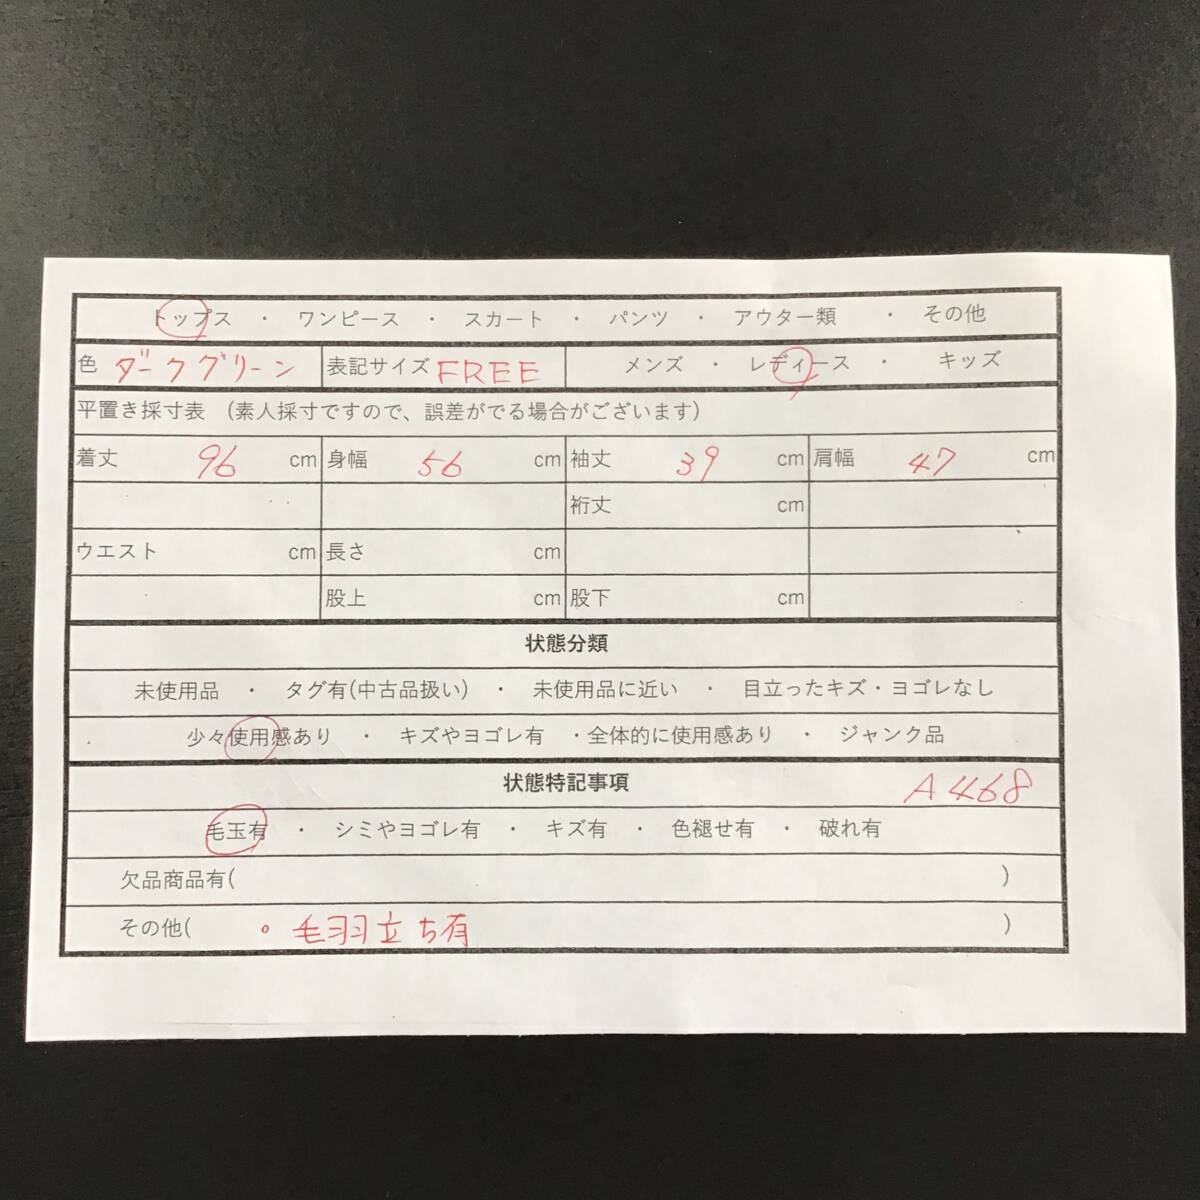 トップス ・ ワンピース ・ スカート ・ パンツ ・ アウター類 ・ その他
色 ダークグリーン 表記サイズ FREE メンズ ・ レディース ・ キッズ
平置き採寸表 (素人採寸ですので、誤差がでる場合がございます)
着丈 96 cm 身幅 56 cm 袖丈 39 cm 肩幅 47 cm
裄丈 cm
ウエスト cm 長さ cm
股上 cm 股下 cm
状態分類
未使用品 ・ タグ有(中古品扱い) ・ 未使用品に近い ・ 目立ったキズ・ヨゴレなし
少々使用感あり ・ キズやヨゴレ有 ・全体的に使用感あり ・ ジャンク品
状態特記事項 A468
毛玉有 ・ シミやヨゴレ有 ・ キズ有 ・ 色褪せ有 ・ 破れ有
欠品商品有( )
その他( 。毛羽立ち有 )